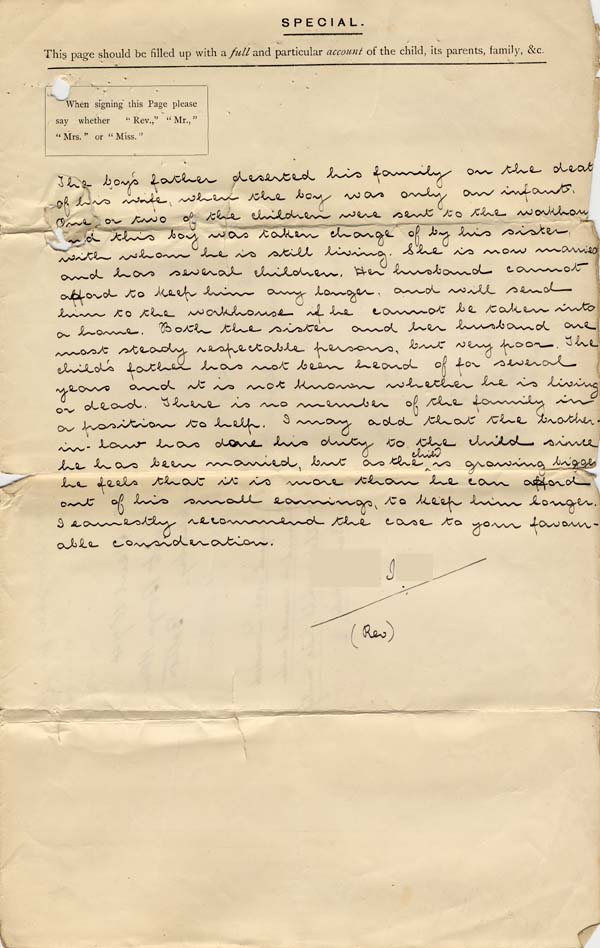 SPECIAL.
This page should be filled up with a full and particular account of the child, its parents, family, &c.
When signing this Page please
say whether "Rev.," "Mr.,"
"Mrs." or "Miss."
The boy's father deserted his family on the deat
of his wife, when the boy was only an infant.
One or two of the children were sent to the workhou
nd this boy was taken charge of by his sister,
with whom he is still living. She is now married
and has several children. Her husband cannot
afford to keep him any longer, and will send
him to the workhouse if he cannot be taken into
a home. Both the sister and her husband are
most steady respectable persons, but very poor. The
child's father has not been heard of for several
years and it is not known whether he is living
or dead. There is no member of the family in
a position to help. I may add that the brother-
in-law has done his duty to the child since
he has been married, but as the child is growing bigge
he feels that it is more than he can afford
out of his small earnings, to keep him longer.
I earnestly recommend the case to your favour-
able consideration.
J.
(Rev)